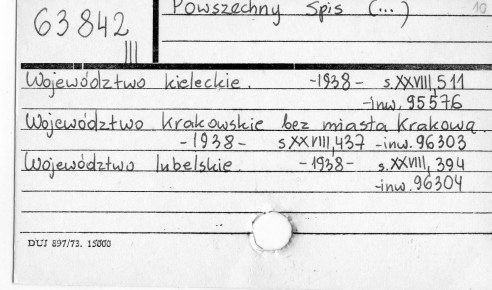 63842
III
Powszechny Spis (...)
10
Województwo kieleckie. -1938- s.XXVIII,511
-inw. 95576
Województwo Krakowskie bez miasta Krakowa.
-1938- s.XXVIII,437 -inw. 96303
Województwo lubelskie. -1938- s.XXVIII, 394
-inw. 96304
DUJ 897/73. 15000